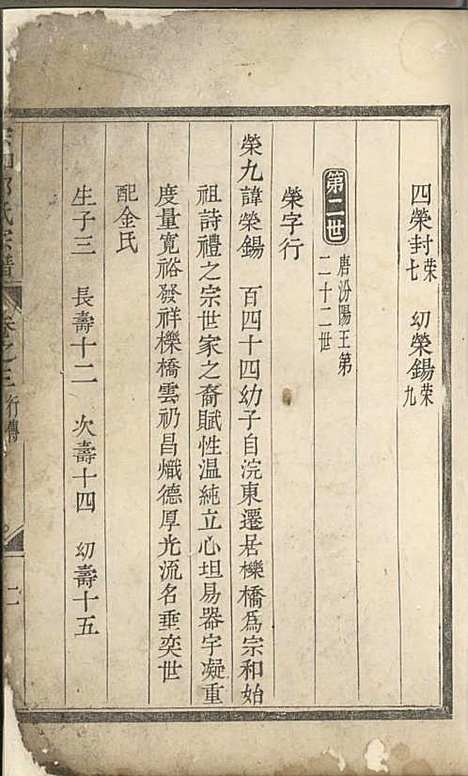 四榮封榮七　幼榮錫榮九
第二世
唐汾陽王第
二十二世
榮字行
榮九諱榮錫　百四十四幼子自浣東遷居櫟橋為宗和始
祖詩禮之宗世家之裔賦性温純立心坦易器宇凝重
度量寬裕發祥櫟橋雲礽昌熾德厚光流名垂奕世
配金氏
生子三　長壽十二　次壽十四　幼壽十五
氏宗譜　卷之三　行傳　二